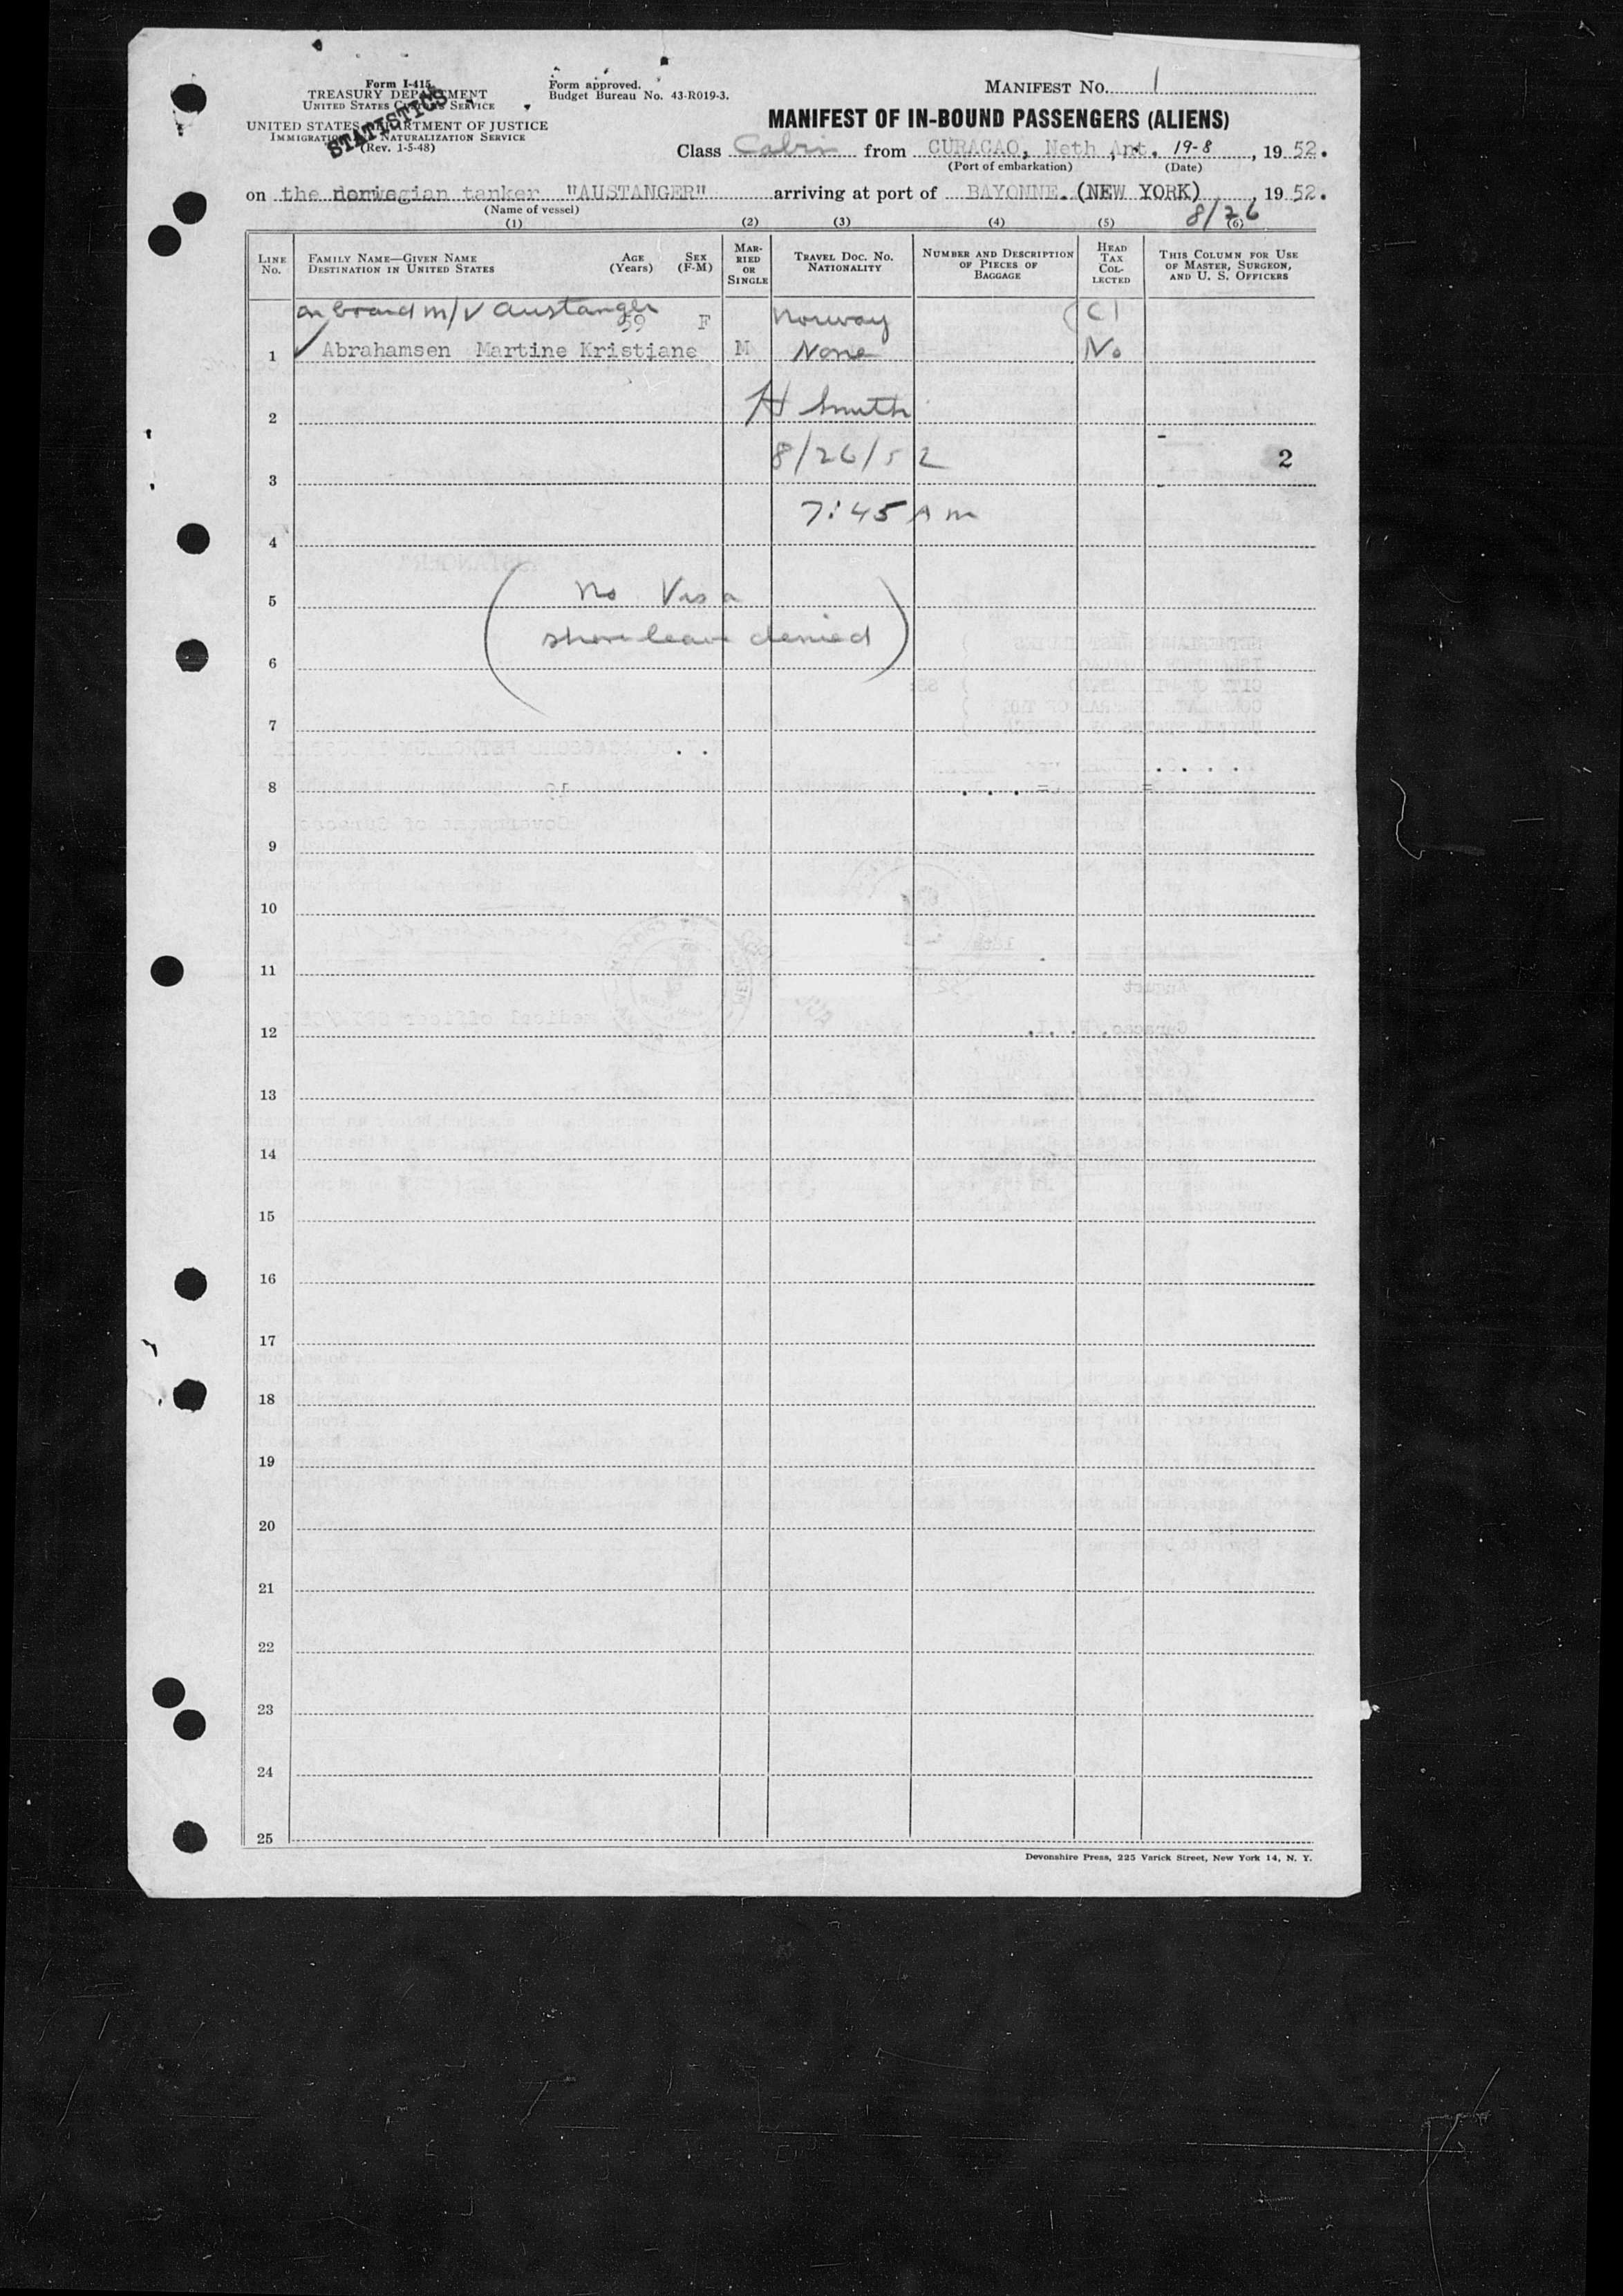 Form I-415
TREASURY DEPARTMENT
UNITED STATES CUSTOMS SERVICE
UNITED STATES DEPARTMENT OF JUSTICE
IMMIGRATION AND NATURALIZATION SERVICE
(Rev. 1-5-48)
STATISTICS
Form approved.
Budget Bureau No. 43-R019-3.
MANIFEST NO. 1
MANIFEST OF IN-BOUND PASSENGERS (ALIENS)
Class Cabin from CURACAO, Neth Ant. 19-8, 1952.
(Port of embarkation) (Date)
on the norwegian tanker "AUSTANGER" arriving at port of BAYONNE. (NEW YORK), 1952.
(Name of vessel) 8/26
(1) (2) (3) (4) (5) (6)
LINE NO. FAMILY NAME—GIVEN NAME DESTINATION IN UNITED STATES AGE (Years) SEX (F-M) MARRIED OR SINGLE TRAVEL DOC. NO. NATIONALITY NUMBER AND DESCRIPTION OF PIECES OF BAGGAGE HEAD TAX COLLECTED THIS COLUMN FOR USE OF MASTER, SURGEON, AND U. S. OFFICERS
on board m/v Austanger 59 F Norway C1
1 Abrahamsen Martine Kristiane M None No
2 H Smith
3 8/26/52 2
7:45 AM
4
5 No Visa
6 shore leave denied
7
8
9
10
11
12
13
14
15
16
17
18
19
20
21
22
23
24
25
Devonshire Press, 225 Varick Street, New York 14, N. Y.